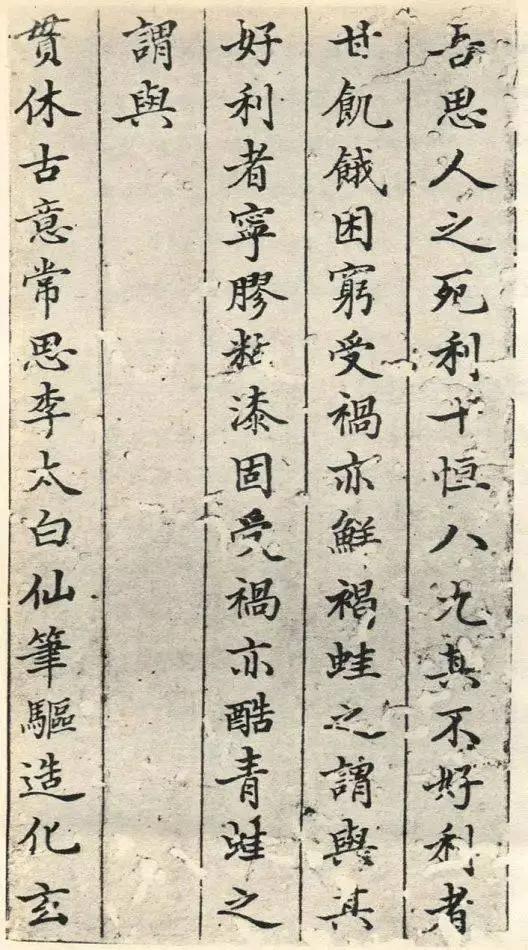 吾思人之死利十恒八九真不好利者
甘飢餓困窮受禍亦鮮褐蛙之謂與其
好利者寧膠粘漆固受禍亦酷青蛙之
謂與
貫休古意常思李太白仙筆驅造化玄